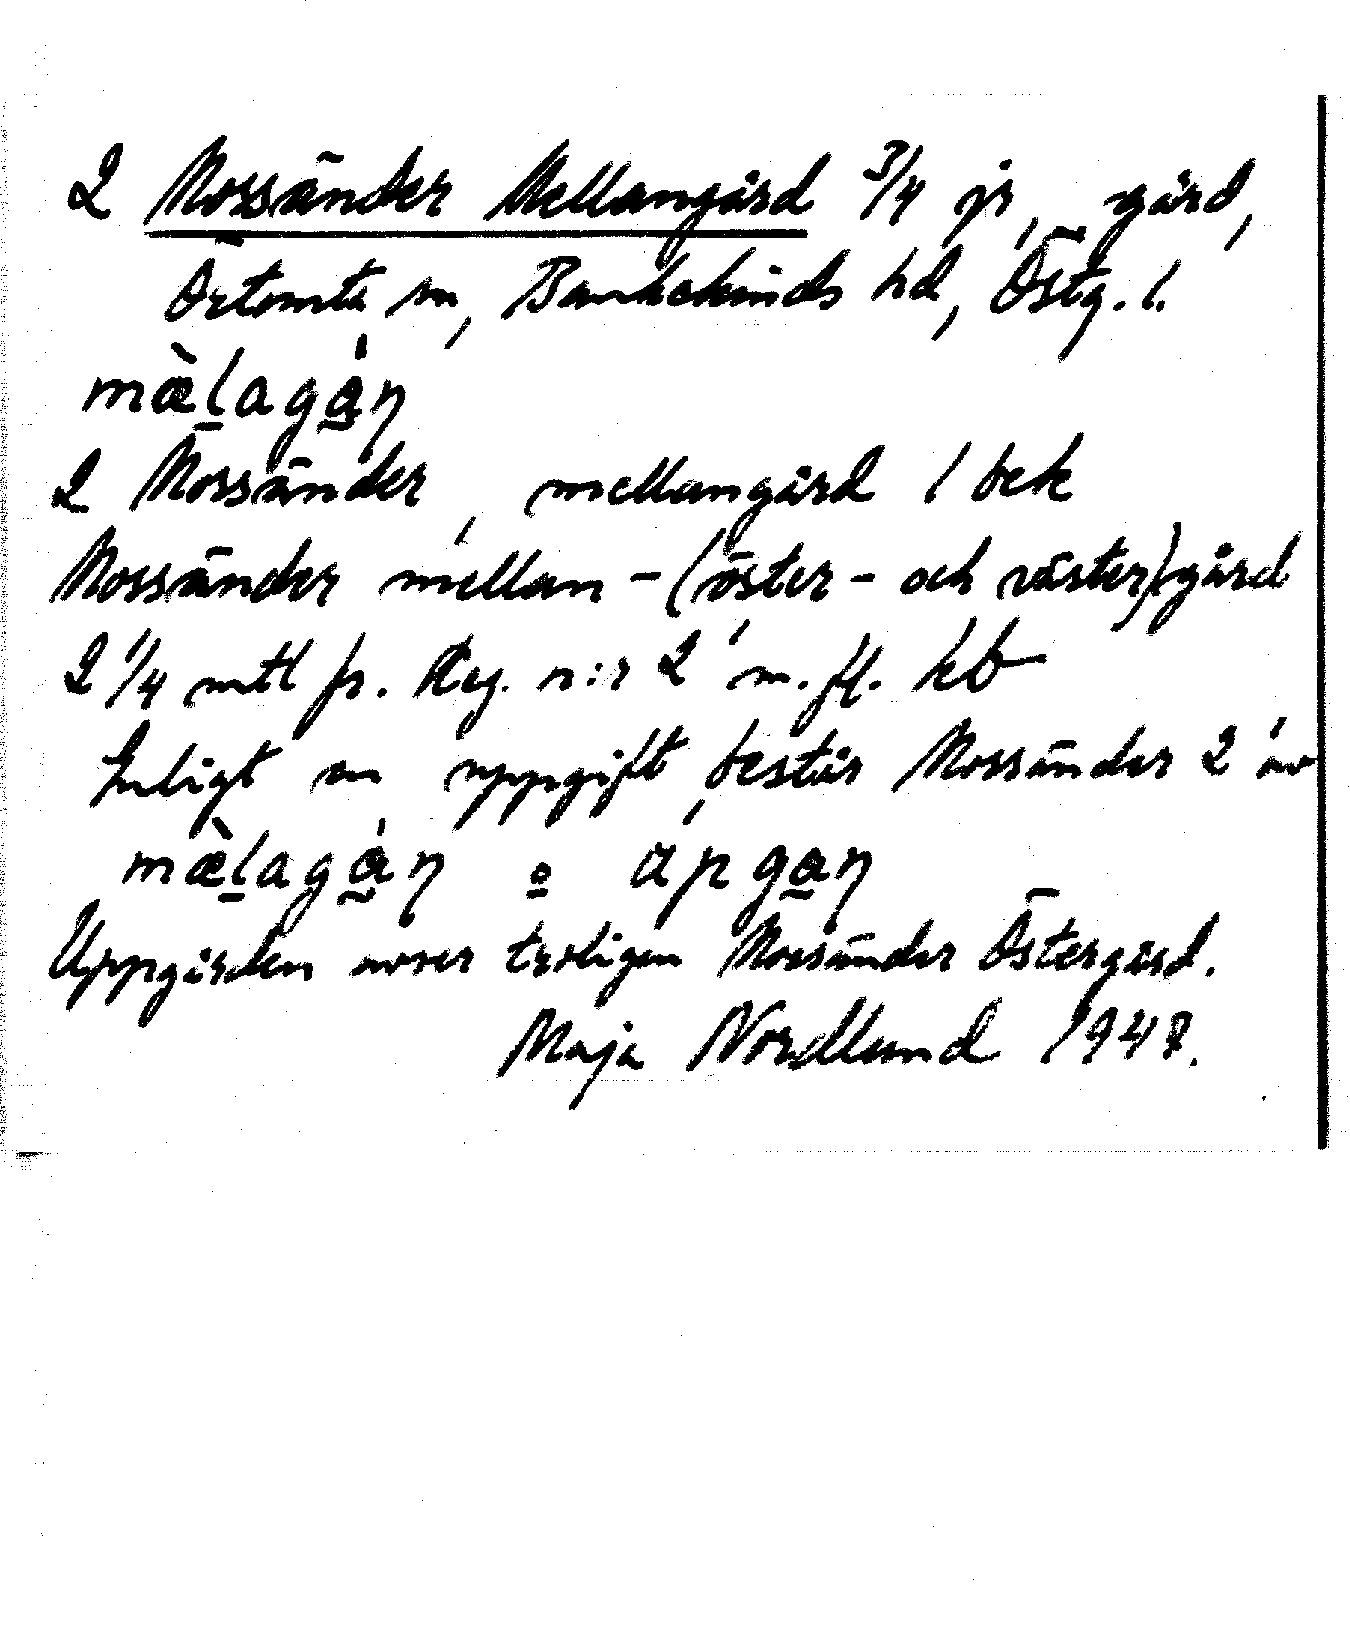 2 Mossänder Mellangård 3/4 fr, gård,
Örtomta sn, Bankekinds hd, Östg. l.
mæ̀lagán
2 Mossänder, mellangård 1 bek
Mossänder mellan - (öster - och väster) gård
2 1/4 mtl fr. Reg. n:r 2 m. fl. kb
Enligt en uppgift består Mossänder 2 av
mæ̀lagán o ápgan
Uppgården avser troligen Mossänder Östergård.
Maja Nordlund 1947.